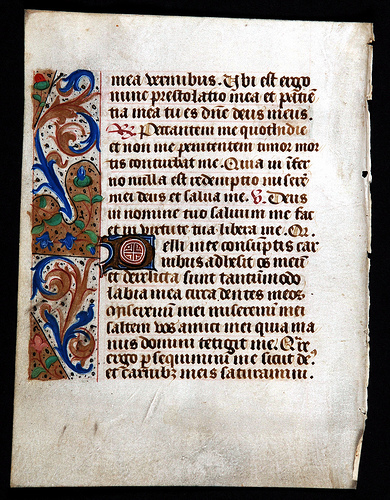 mea vermibus. Ubi est ergo
nunc prestolatio mea et patiẽ
tia mea tu es dñe deus meus.
R. Peccantem me quottidie
et non me penitentem timor mor
tis conturbat me. Quia in ĩfer
no nulla est redemptio misere
mei deus et salva me. V. Deus
in nomine tuo salvum me fac
et in virtute tua libera me. Qr.
Pelli mee consũptis car
nibus adhesit os meũ
et derelicta sunt tantũmodo
labia mea circa dentes meos.
miseremini mei miseremini mei
saltem vos amici mei quia ma
nus domini tetigit me. Q̃re
ergo ꝑsequimini me sicut de⁹
et carnibꝫ meis saturamini.